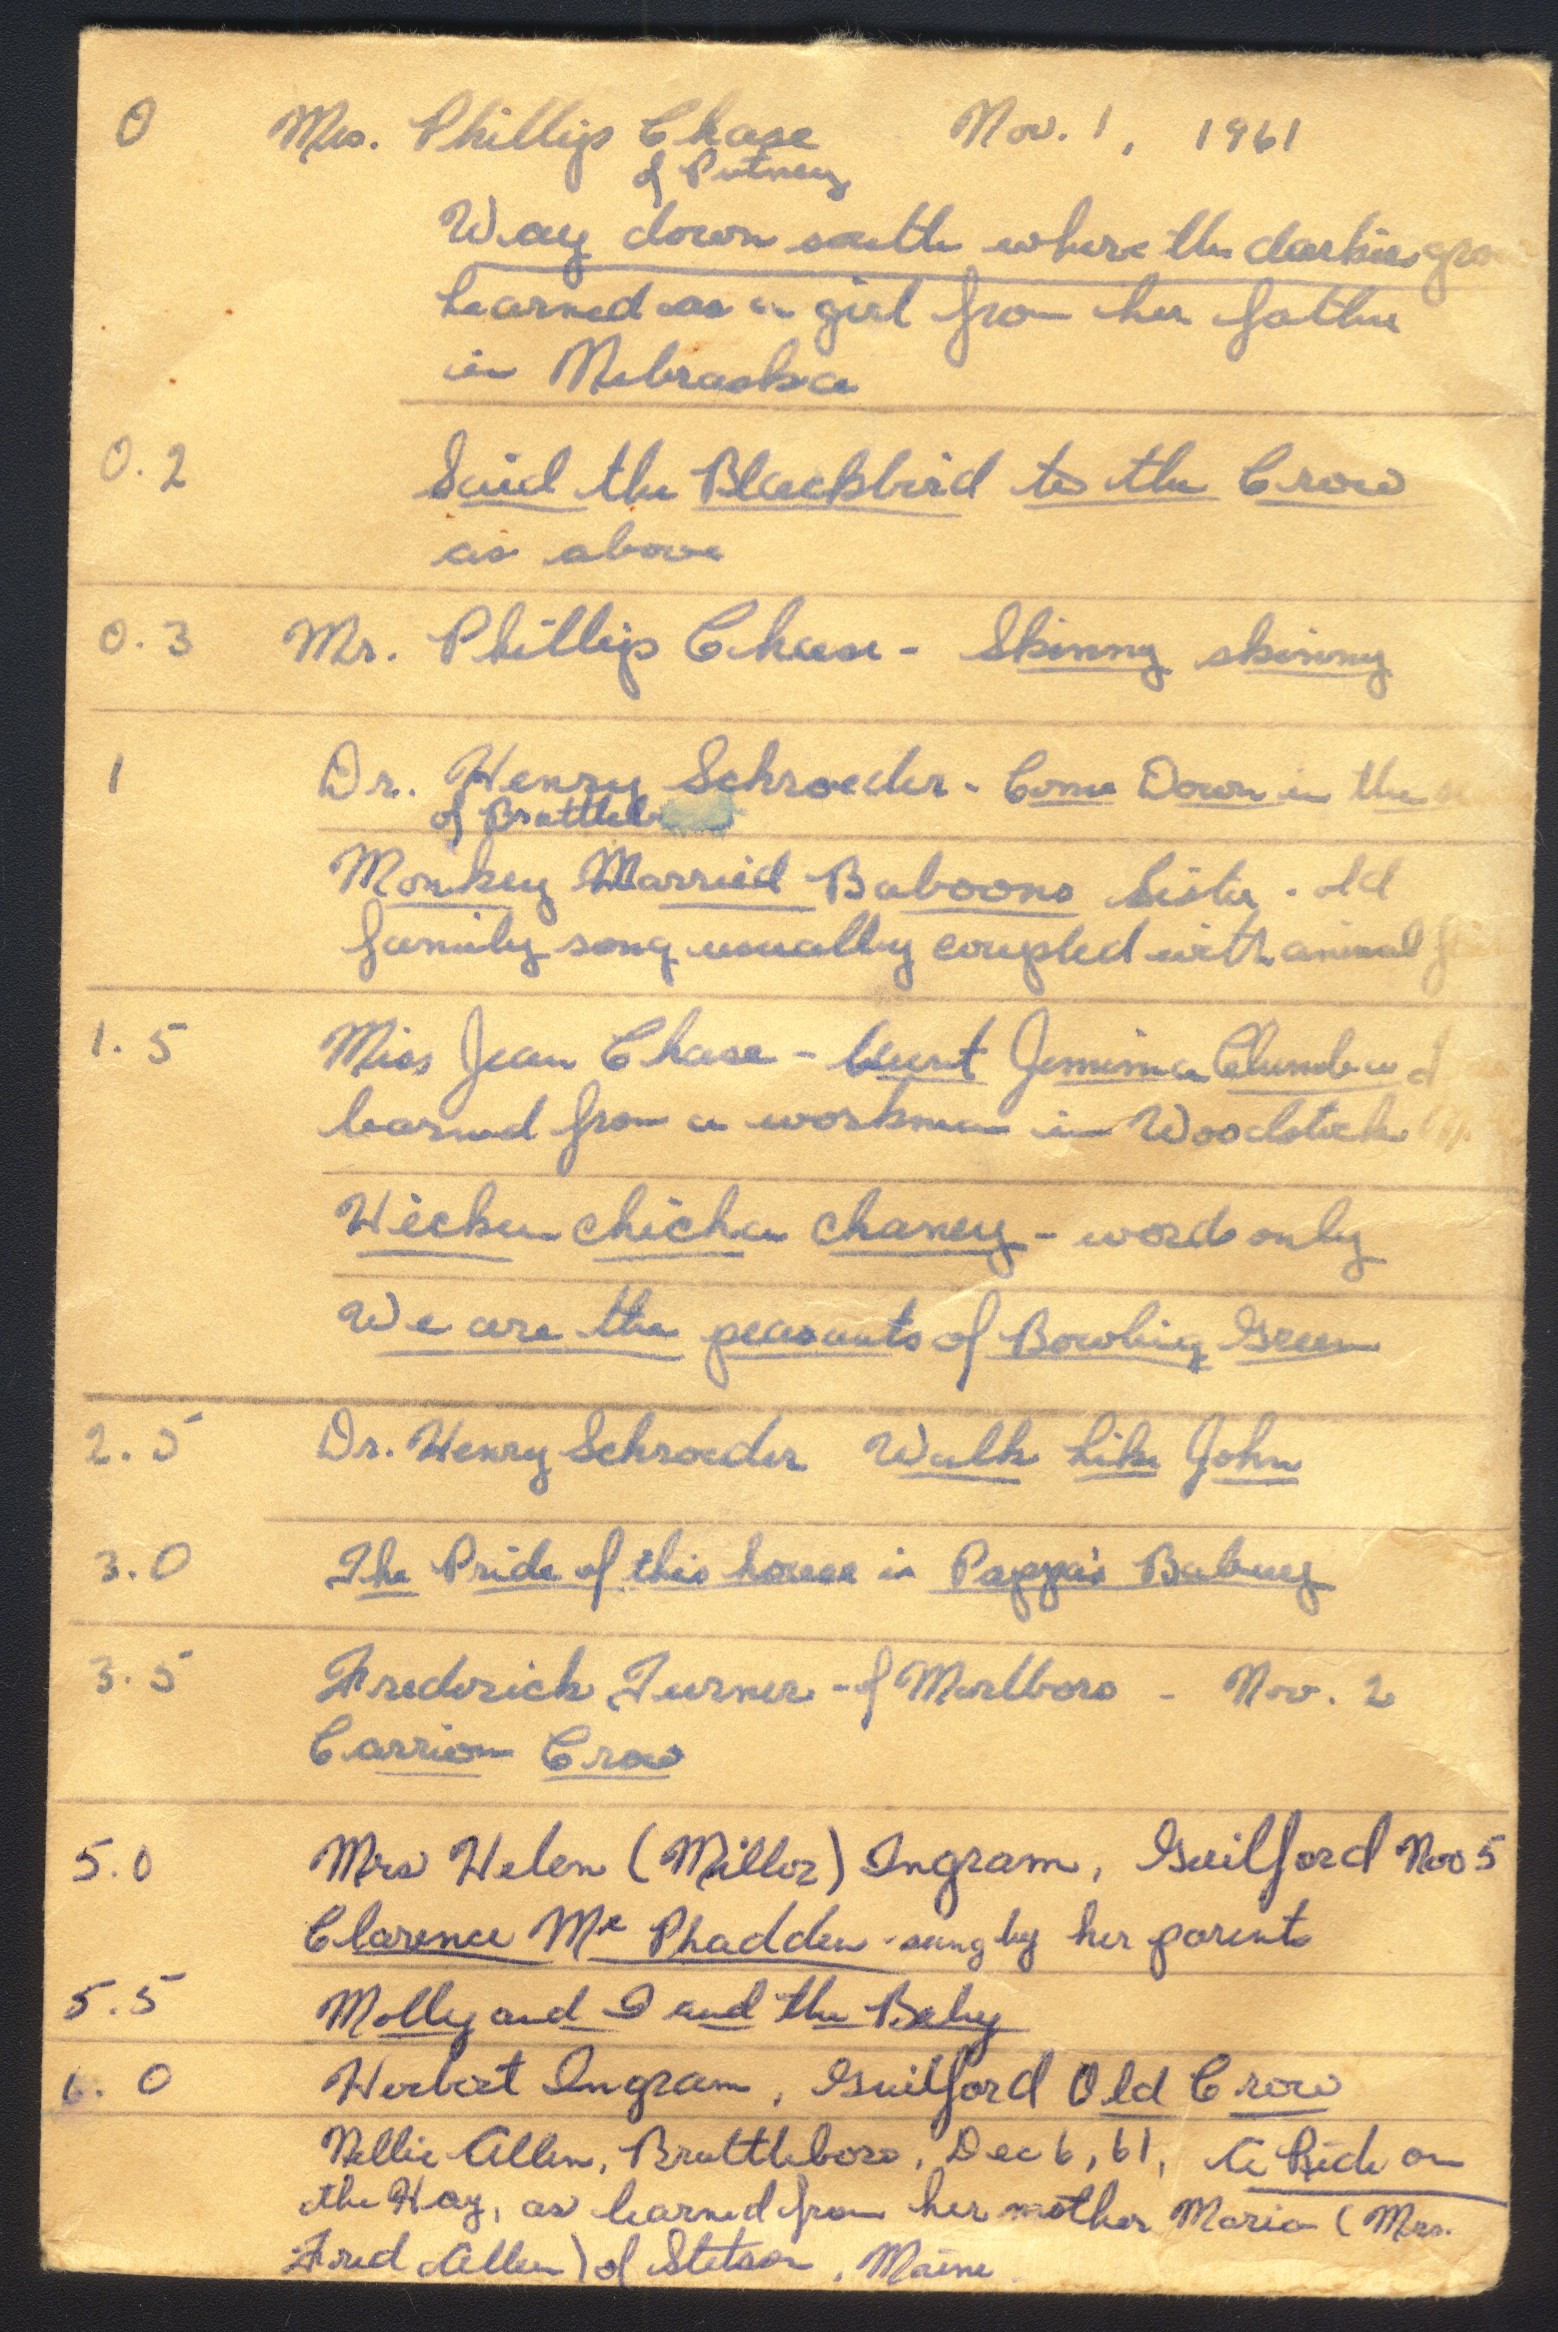 0 Mrs. Phillips Chase Nov. 1, 1961
of Putney
Way down south where the darkies
learned as a girl from her father
in Nebraska
0.2 Said the Blackbird to the Crow
as above
0.3 Mr. Phillips Chase - Skinny skinny
1 Dr. Henry Schroeder - Come Down in the
of
Monkey Married Baboons Sister - old
family song usually coupled with animal
1.5 Miss Jean Chase - Aunt Jemima
learned from a workman in Woodstock
chaney - words only
We are the peasants of Bowling Green
2.5 Dr. Henry Schroeder Walk Like John
3.0 The Pride of this house is Pappa's
3.5 Frederick Turner - of Marlboro - Nov. 2
Carrion Crow
5.0 Mrs Helen (Miller) Ingram, Guilford Nov 5
Clarence Mc Phadden - sung by her parents
5.5 Molly and I and the Baby
6.0 Herbert Ingram, Guilford Old Crow
Nellie Allen, Brattleboro, Dec 6, 61, A Ride on
the Hay, as learned from her mother Maria (Mrs.
Fred Allen) of Stetson, Maine.